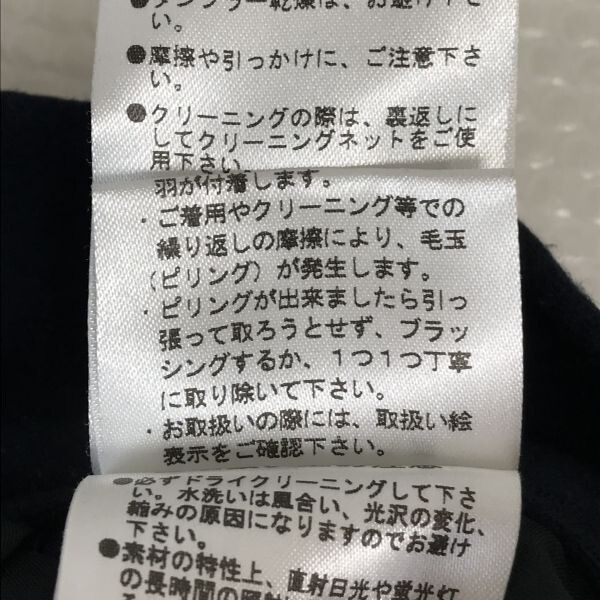 ●タンブラー乾燥は、お避け下さ
い。
●摩擦や引っかけに、ご注意下さ
い。
●クリーニングの際は、裏返しに
してクリーニングネットをご使
用下さい
羽が付着します。
・ご着用やクリーニング等での
繰り返しの摩擦により、毛玉
(ピリング)が発生します。
・ピリングが出来ましたら引っ
張って取ろうとせず、ブラッ
シングするか、1つ1つ丁寧
に取り除いて下さい。
・お取扱いの際には、取扱い絵
表示をご確認下さい。
●必ずドライクリーニングして下さ
い。水洗いは風合い、光沢の変化、
縮みの原因になりますのでお避け
下さい。
●素材の特性上、直射日光や蛍光灯
の長時間の照射